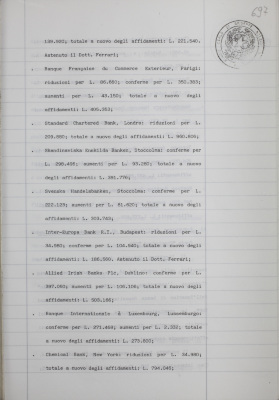 697
139.600; totale a nuovo degli affidamenti: L. 221.540.
Astenuto il Dott. Ferrari;
. Banque Française du Commerce Exterieur, Parigi:
riduzioni per L. 96.880; conferme per L. 352.205;
aumenti per L. 43.150; totale a nuovo degli
affidamenti: L. 405.355;
. Standard Chartered Bank, Londra: riduzioni per L.
209.950; totale a nuovo degli affidamenti: L. 960.806;
. Skandinaviska Enskilda Banken, Stoccolma: conferme per
L. 298.495; aumenti per L. 93.280; totale a nuovo
degli affidamenti: L. 391.775;
. Svenska Handelsbanken, Stoccolma: conferme per L.
222.123; aumenti per L. 81.620; totale a nuovo degli
affidamenti: L. 303.743;
. Inter-Europa Bank R.T., Budapest: riduzioni per L.
34.980; conferme per L. 104.940; totale a nuovo degli
affidamenti: L. 186.500. Astenuto il Dott. Ferrari;
. Allied Irish Banks Plc, Dublino: conferme per L.
397.080; aumenti per L. 106.106; totale a nuovo degli
affidamenti: L. 503.186;
. Banque Internationale à Luxembourg, Luxemburgo:
conferme per L. 271.468; aumenti per L. 2.332; totale
a nuovo degli affidamenti: L. 273.800;
. Chemical Bank, New York: riduzioni per L. 34.980;
totale a nuovo degli affidamenti: L. 794.046;